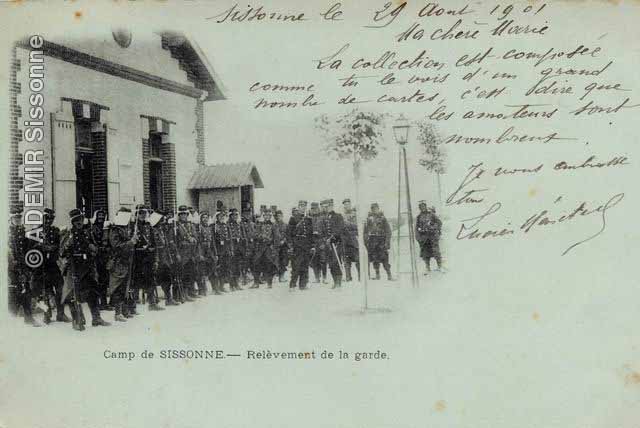 Sissonne le 29 Aout 1901
Ma chère Marie
La collection est composée
comme tu le vois d'un grand
nombre de cartes, c'est dire que
les amateurs sont
nombreux
Je vous embrasse
Lucien
Camp de SISSONNE.— Relèvement de la garde.
© ADEMIR Sissonne